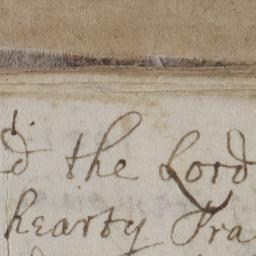 d the Lord
hearty Tra